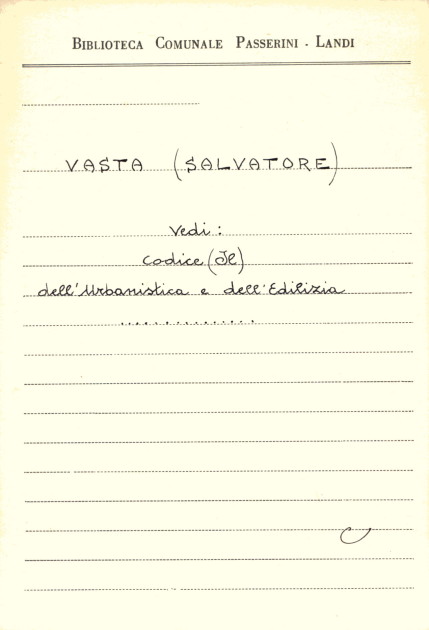 BIBLIOTECA COMUNALE PASSERINI - LANDI
VASTA (SALVATORE)
Vedi:
Codice (Il)
dell'Urbanistica e dell'Edilizia
...............